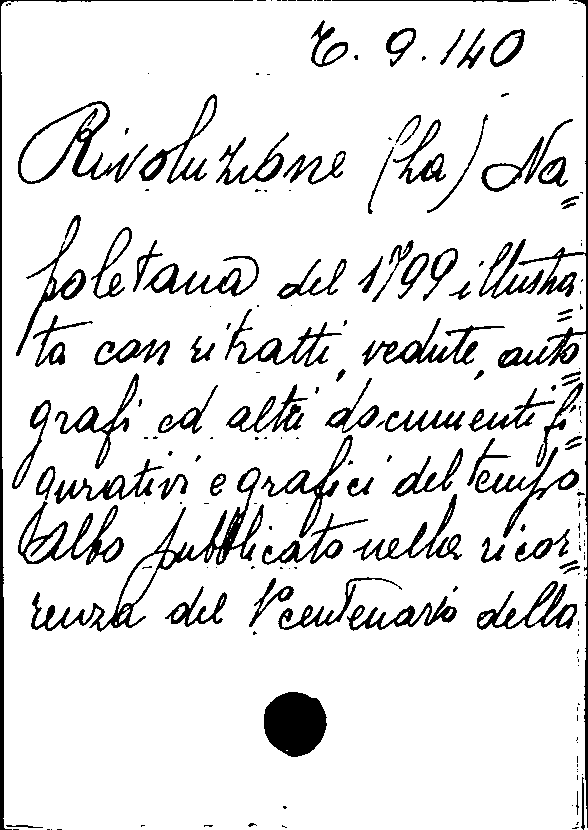 6. 9. 140
Rivoluzione (La) Na=
poletana del 1799 illustra=
ta con ritratti, vedute, auto=
grafi ed altri documenti fi=
gurativi e grafici del tempo.
Albo pubblicato nella ricor=
renza del 1° centenario della